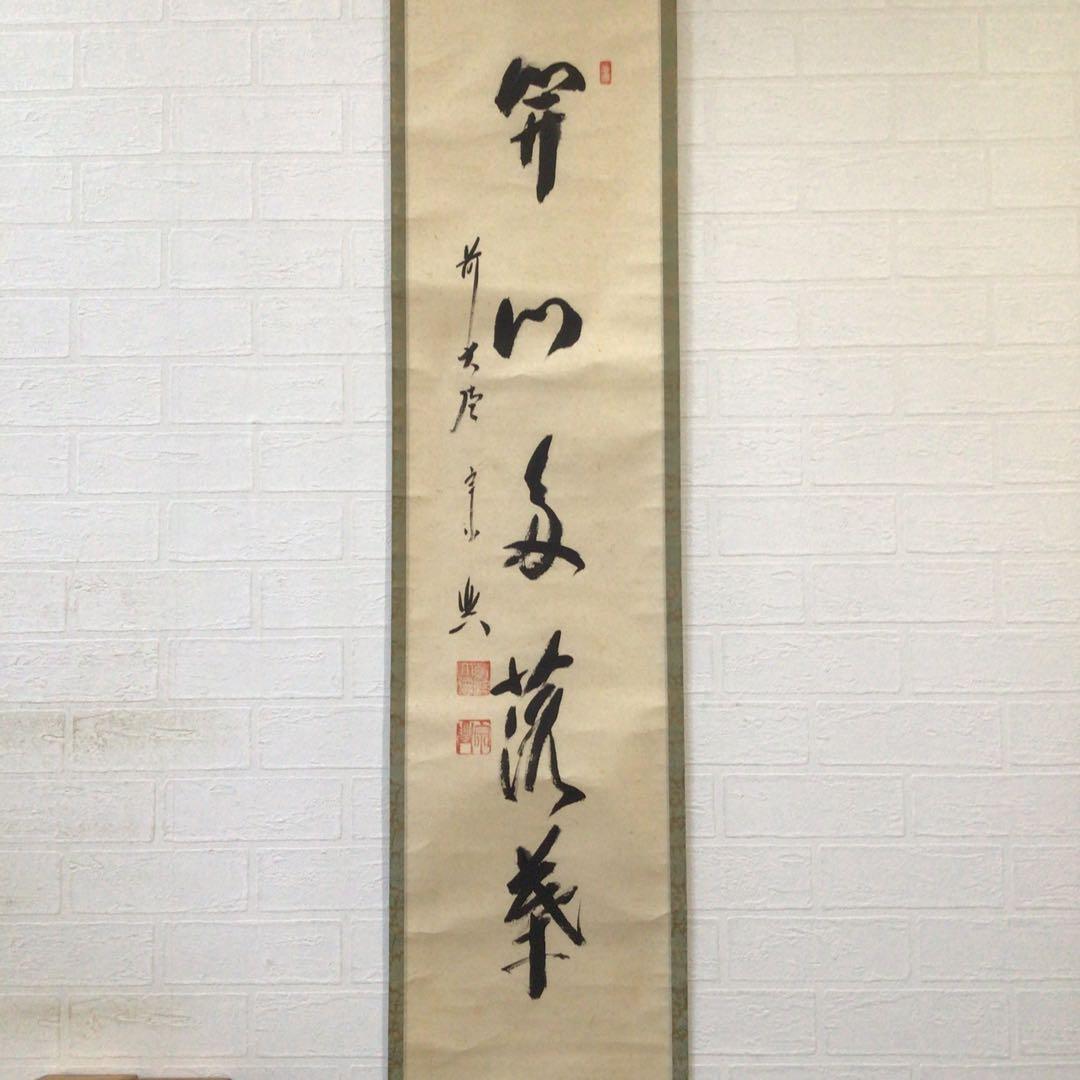 開門多落葉
前大徳宗興